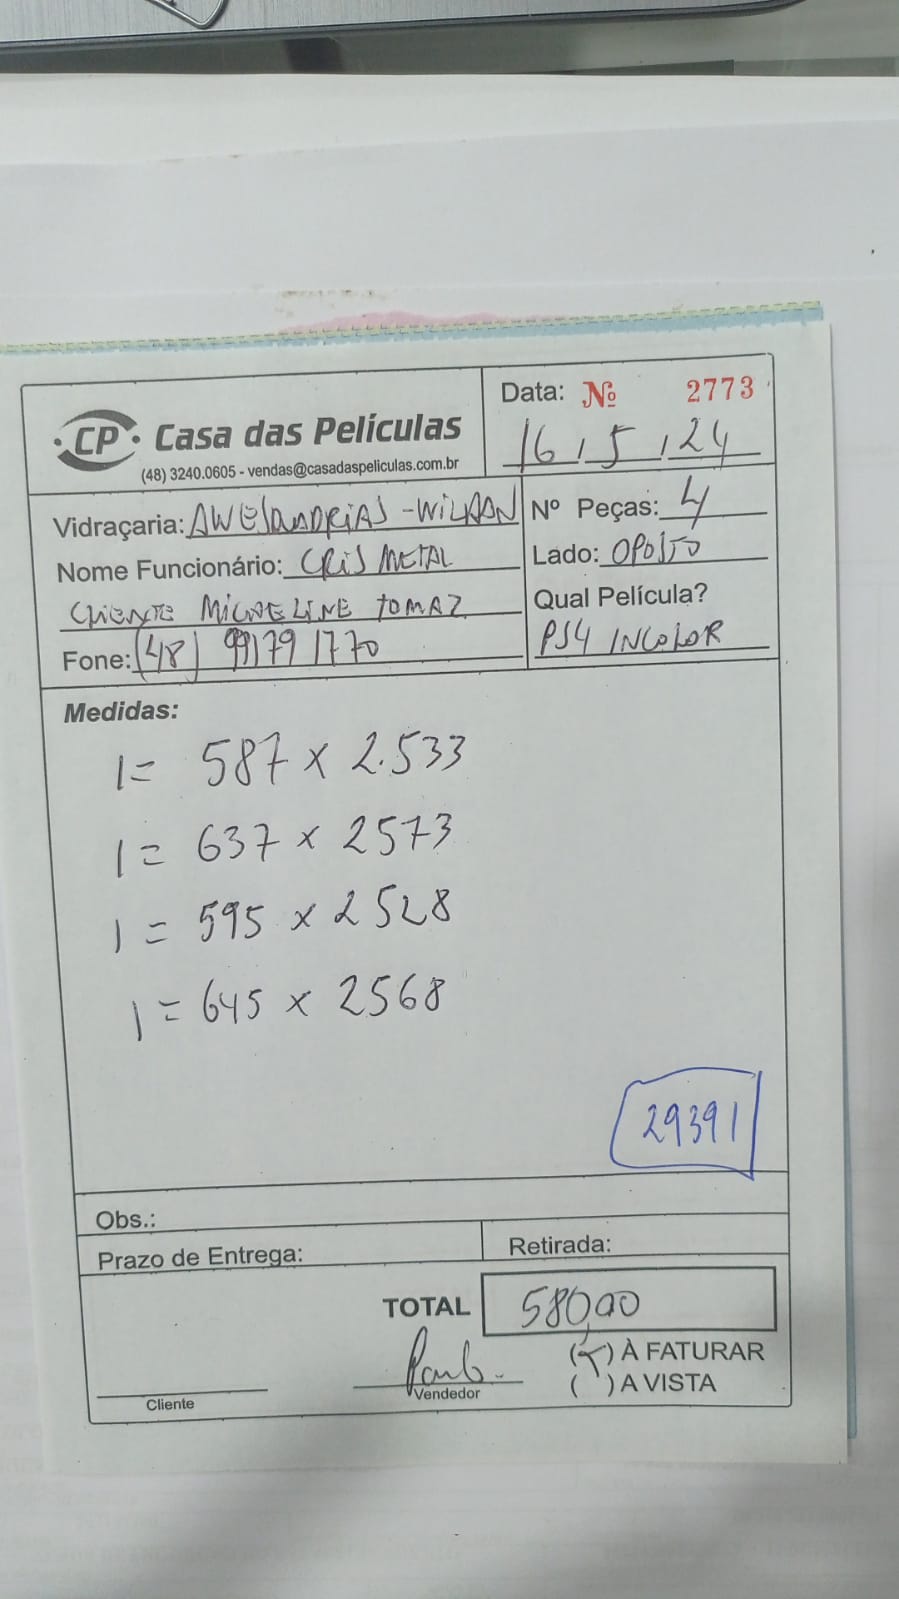 CP Casa das Películas
(48) 3240.0605 - vendas@casadaspeliculas.com.br
Data: Nº 2773
16, 5, 24
Vidraçaria: - WILSON
Nº Peças: 4
Nome Funcionário: CRIS METAL
Lado: OPOSTO
CLIENTE MICHELINE TOMAZ
Qual Película?
Fone: (48) 99179 1770
PS4 INCOLOR
Medidas:
1= 587 x 2.533
1= 637 x 2573
1= 595 x 2528
1= 645 x 2568
29391
Obs.:
Prazo de Entrega:
Retirada:
TOTAL 580,00
Cliente
Vendedor
(X) À FATURAR
( ) A VISTA